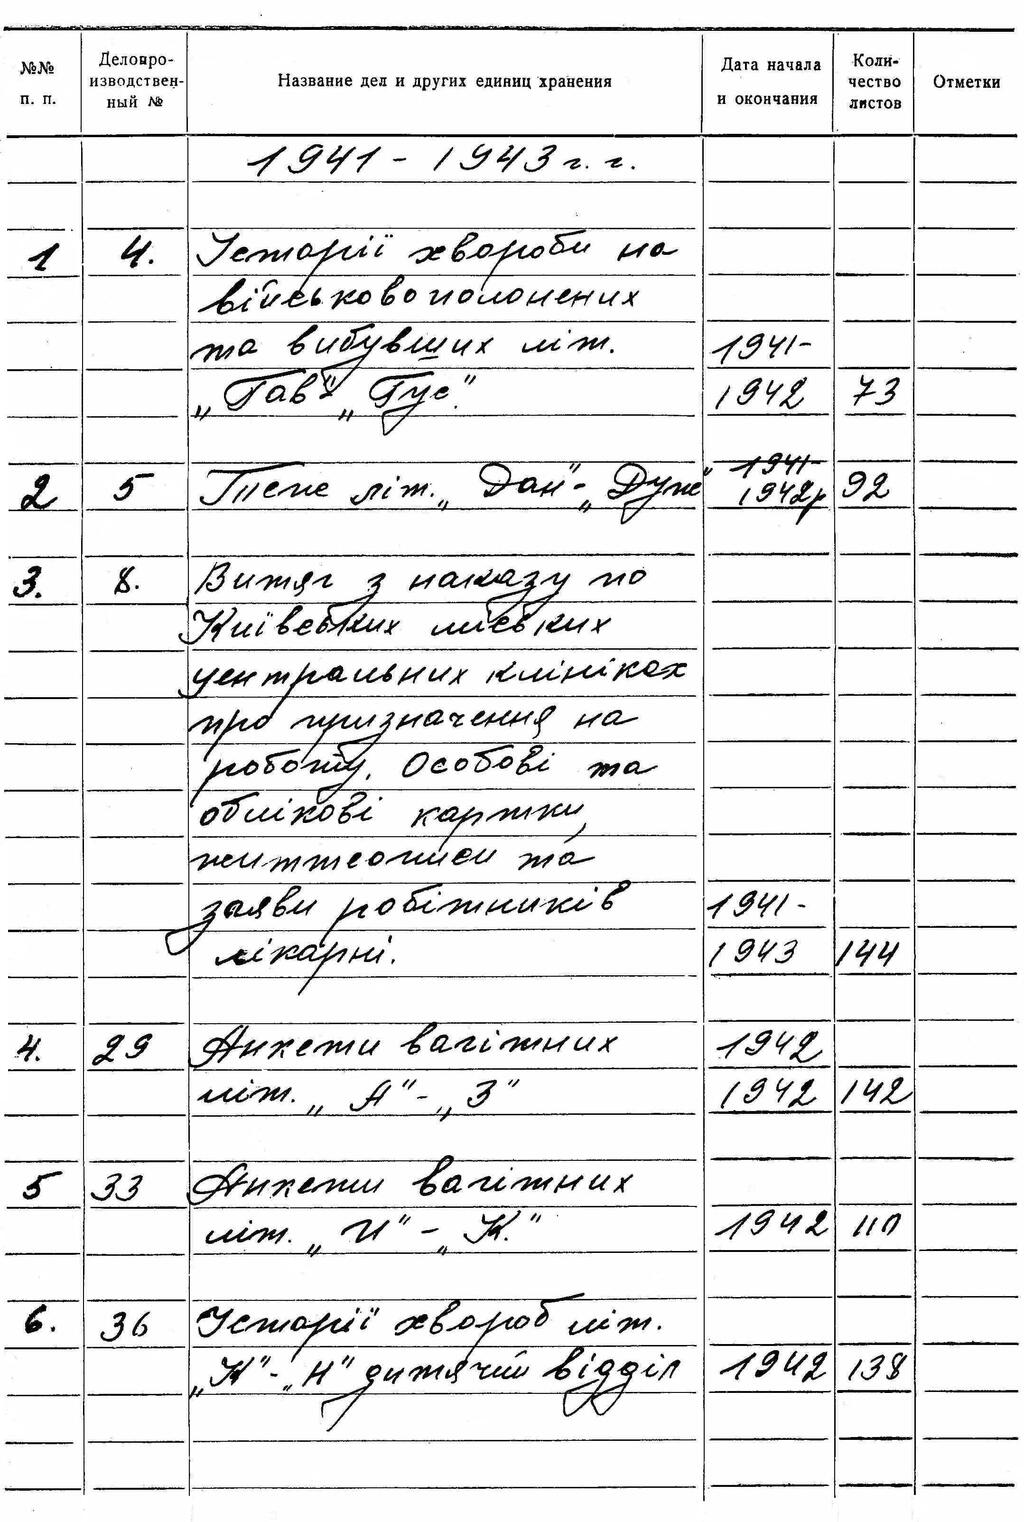 №№ п. п.
Делопро-
изводствен-
ный №
Название дел и других единиц хранения
Дата начала
и окончания
Коли-
чество
листов
Отметки
1941 - 1943 г. г.
1 4. Історії хвороби на
військовополонених
та вибувших літ. 1941-
„Гав"-„Гус". 1942 73
1941-
2 5 Теж літ. „Дан"-„Дуж" 1942р 92
3. 8. Витяг з наказу по
Київських міських
центральних клініках
про призначення на
роботу. Особові та
облікові картки,
життєописи та
заяви робітників 1941-
лікарні. 1943 144
4. 29 Анкети вагітних 1942
літ. „А"-„З" 1942 142
5 33 Анкети вагітних
літ. „И"-„К." 1942 110
6. 36 Історії хвороб літ.
„К"-„Н" дитячий відділ 1942 138